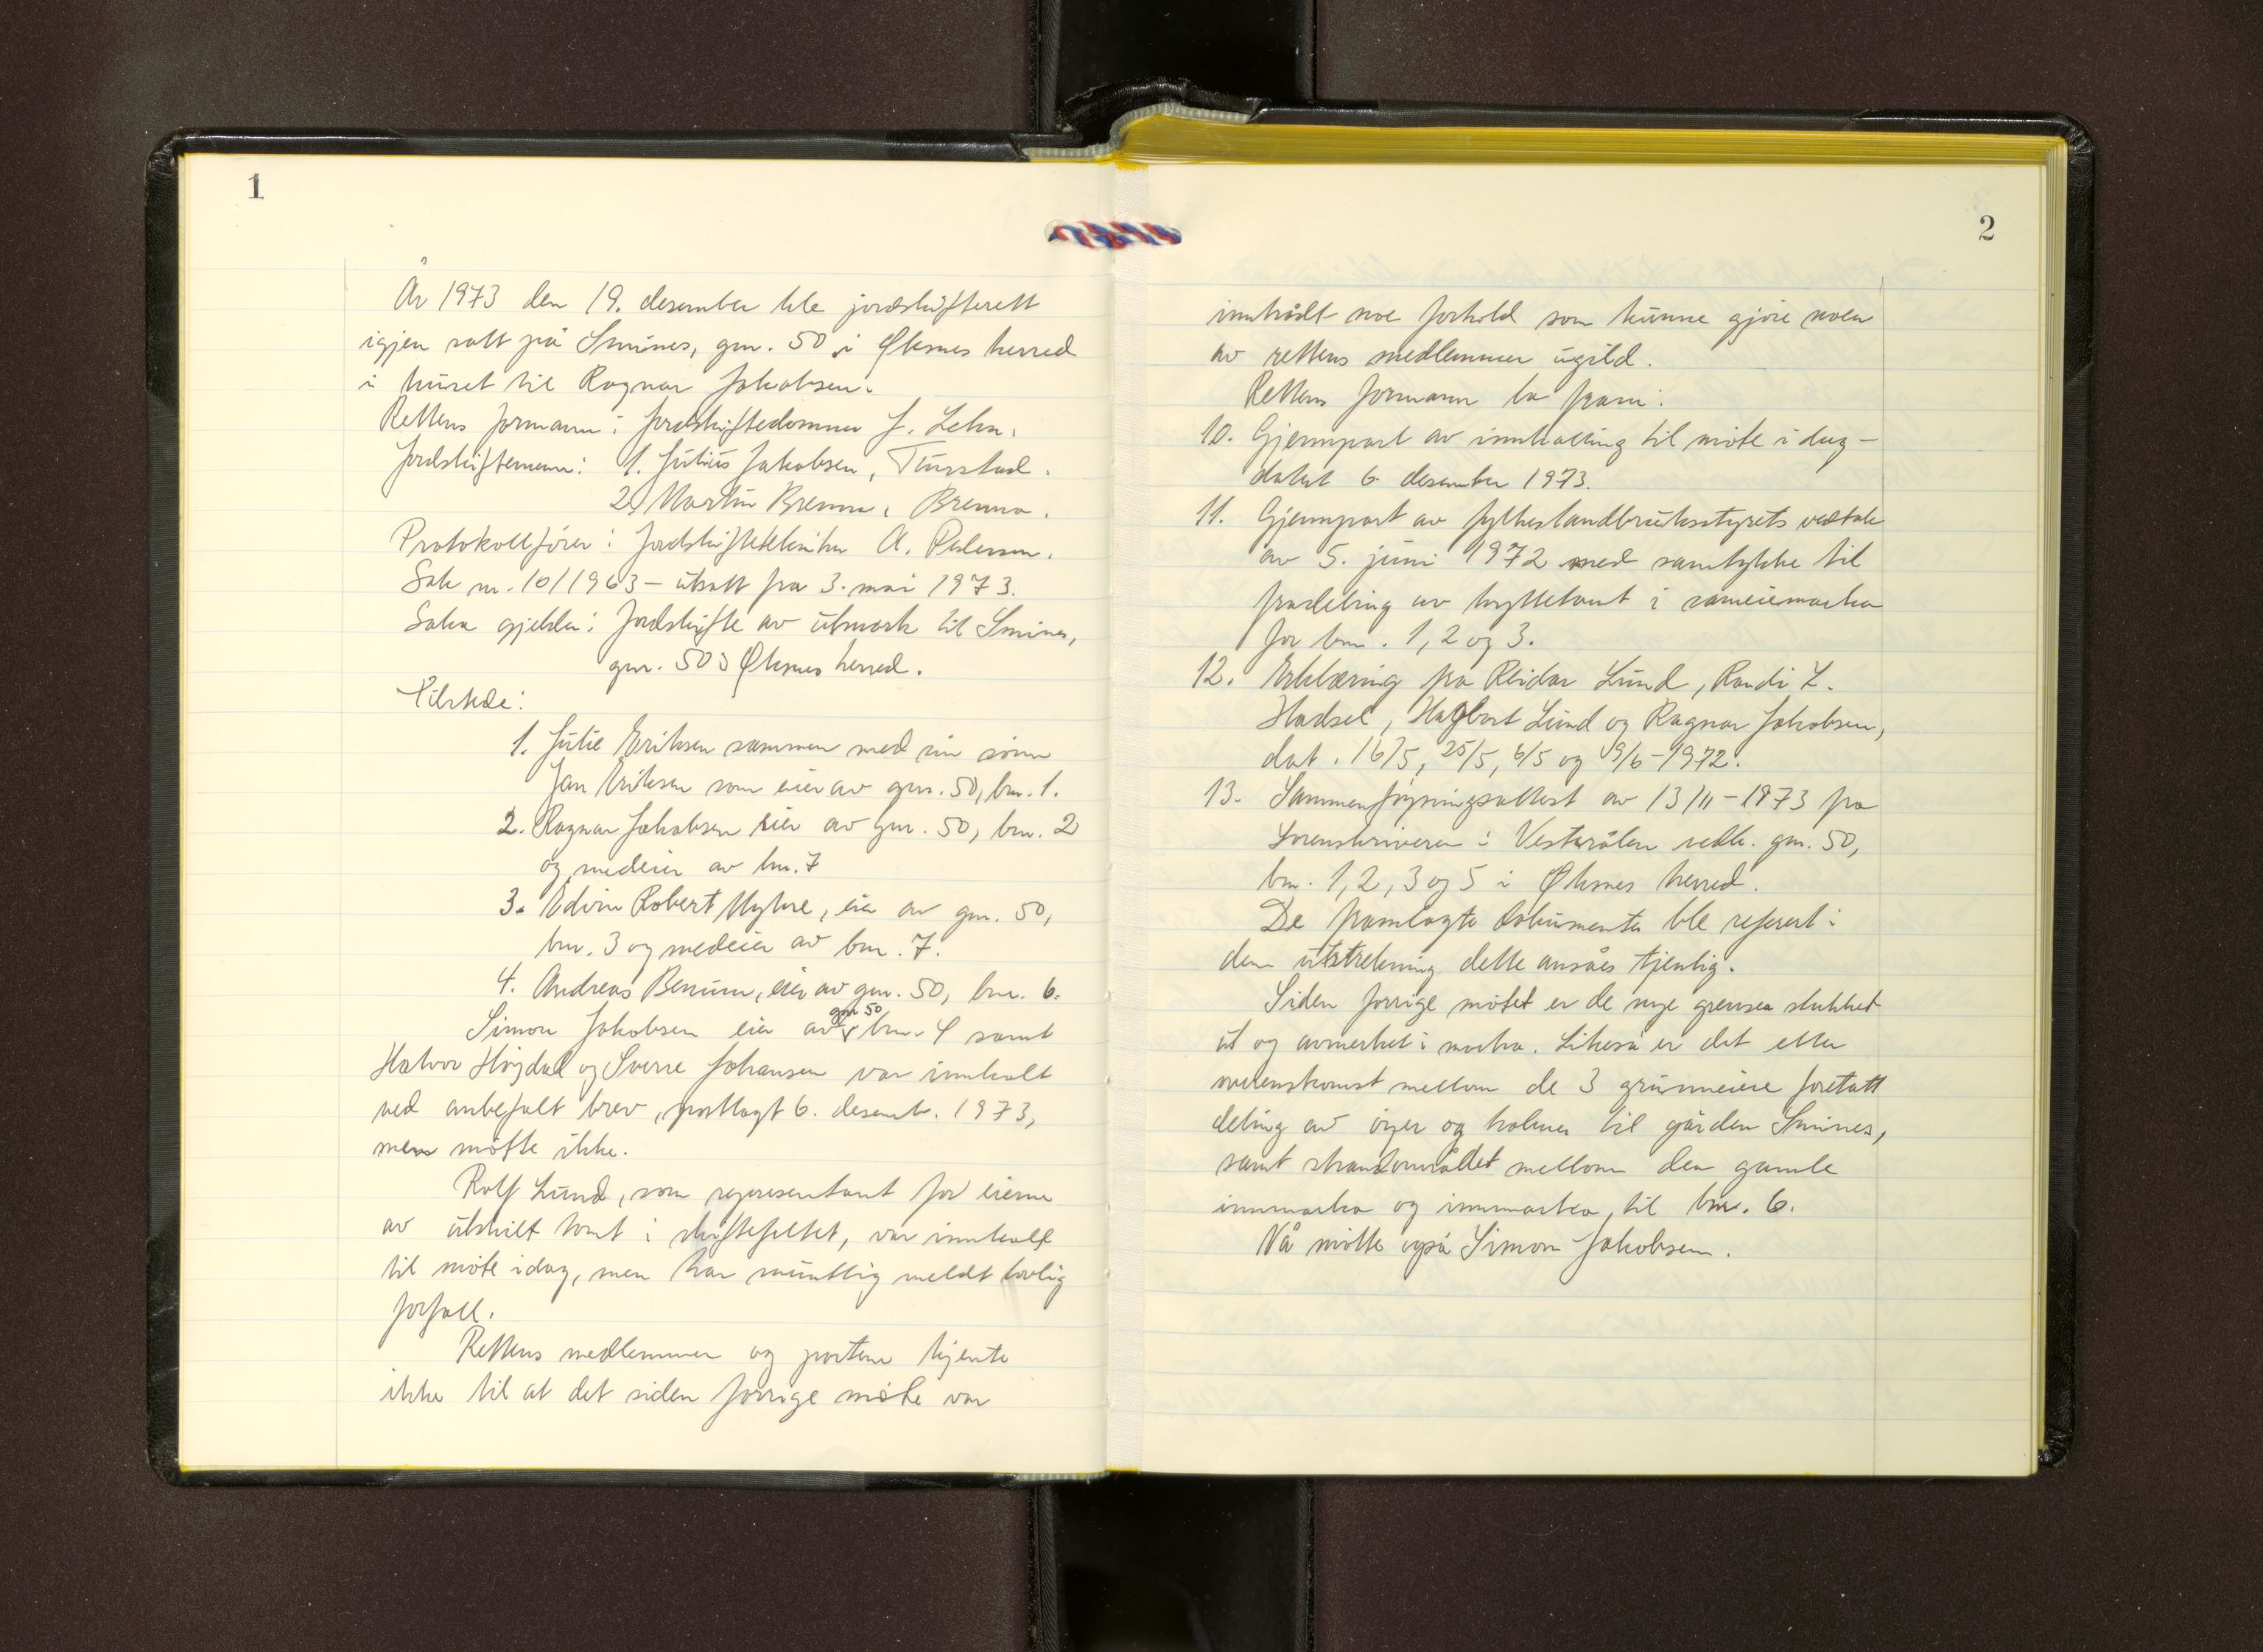 1
År 1973 den 19. desember ble jordskifterett
igjen satt på Smines, gnr. 50 i Øksnes herred
i huset til Ragnar Jakobsen.
Rettens formann: Jordskiftedommer J. Lehn.
Jordskiftemenn: 1. Julius Jakobsen, Tunstad.
2. Martin Brenna, Brenna.
Protokollfører: Jordskiftetekniker A. Pedersen.
Sak nr. 10/1963 – utsatt fra 3. mai 1973.
Saka gjelder: Jordskifte av utmark til Smines,
gnr. 50 i Øksnes herred.
Tilstede:
1. Julie Eriksen sammen med sin sønn
Jan Eriksen som eier av gnr. 50, bnr. 1.
2. Ragnar Jakobsen eier av gnr. 50, bnr. 2
og medeier av bnr. 7
3. Edvin Robert Myhre, eier av gnr. 50,
bnr. 3 og medeier av bnr. 7.
4. Andreas Benum, eier av gnr. 50, bnr. 6.
Simon Jakobsen eier av gnr 50 bnr. 4 samt
Halvor Høydal og Sverre Johansen var innkalt
ved anbefalt brev, postlagt 6. desemb. 1973,
men møtte ikke.
Rolf Lund, som representant for eierne
av utskilt tomt i skiftefeltet, var innkalt
til møte idag, men har muntlig meldt lovlig
forfall.
Rettens medlemmer og partene kjente
ikke til at det siden forrige møte var
2
inntrådt noe forhold som kunne gjøre noen
av rettens medlemmer ugild.
Rettens formann la fram:
10. Gjennpart av innkalling til møte i dag –
datert 6. desember 1973.
11. Gjennpart av fylkeslandbruksstyrets vedtak
av 5. juni 1972 med samtykke til
fradeling av hyttetomt i sameiemarka
for bnr. 1, 2 og 3.
12. Erklæring fra Reidar Lund, Randi L.
Hadsel, Hagbart Lund og Ragnar Jakobsen,
dat. 16/5, 25/5, 6/5 og 19/6 – 1972.
13. Sammenføyningsattest av 13/11 – 1973 fra
Sorenskriveren i Vesterålen vedk. gnr. 50,
bnr. 1, 2, 3 og 5 i Øksnes herred.
De framlagte dokumenter ble referert i
den utstrekning dette ansåes tjenlig.
Siden forrige møtet er de nye grenser stukket
ut og avmerket i marka. Likeså er det etter
overenskomst mellom de 3 grunneiere foretatt
deling av øyer og holmer til gården Smines,
samt strandområdet mellom den gamle
innmarka og innmarka til bnr. 6.
Nå møtte også Simon Jakobsen.